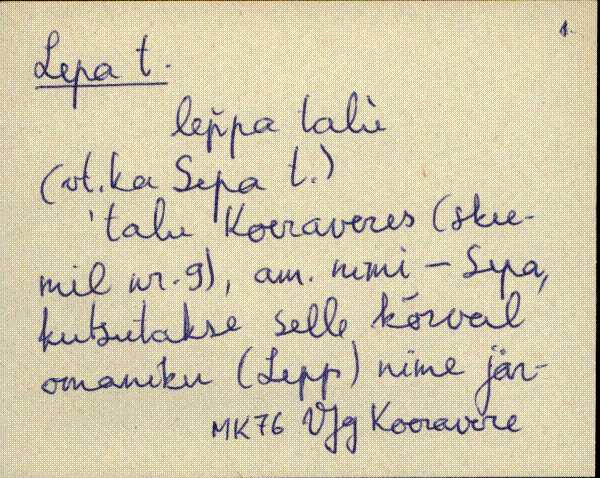 1.
Lepa t.
lep̌pa talu̇
(vt. ka Sepa t.)
'talu Koeraveres (skee-
mil nr. 9), am. nimi – Sepa,
kutsutakse selle kõrval
omaniku (Lepp) nime jär-
MK76 VJg Kooravere